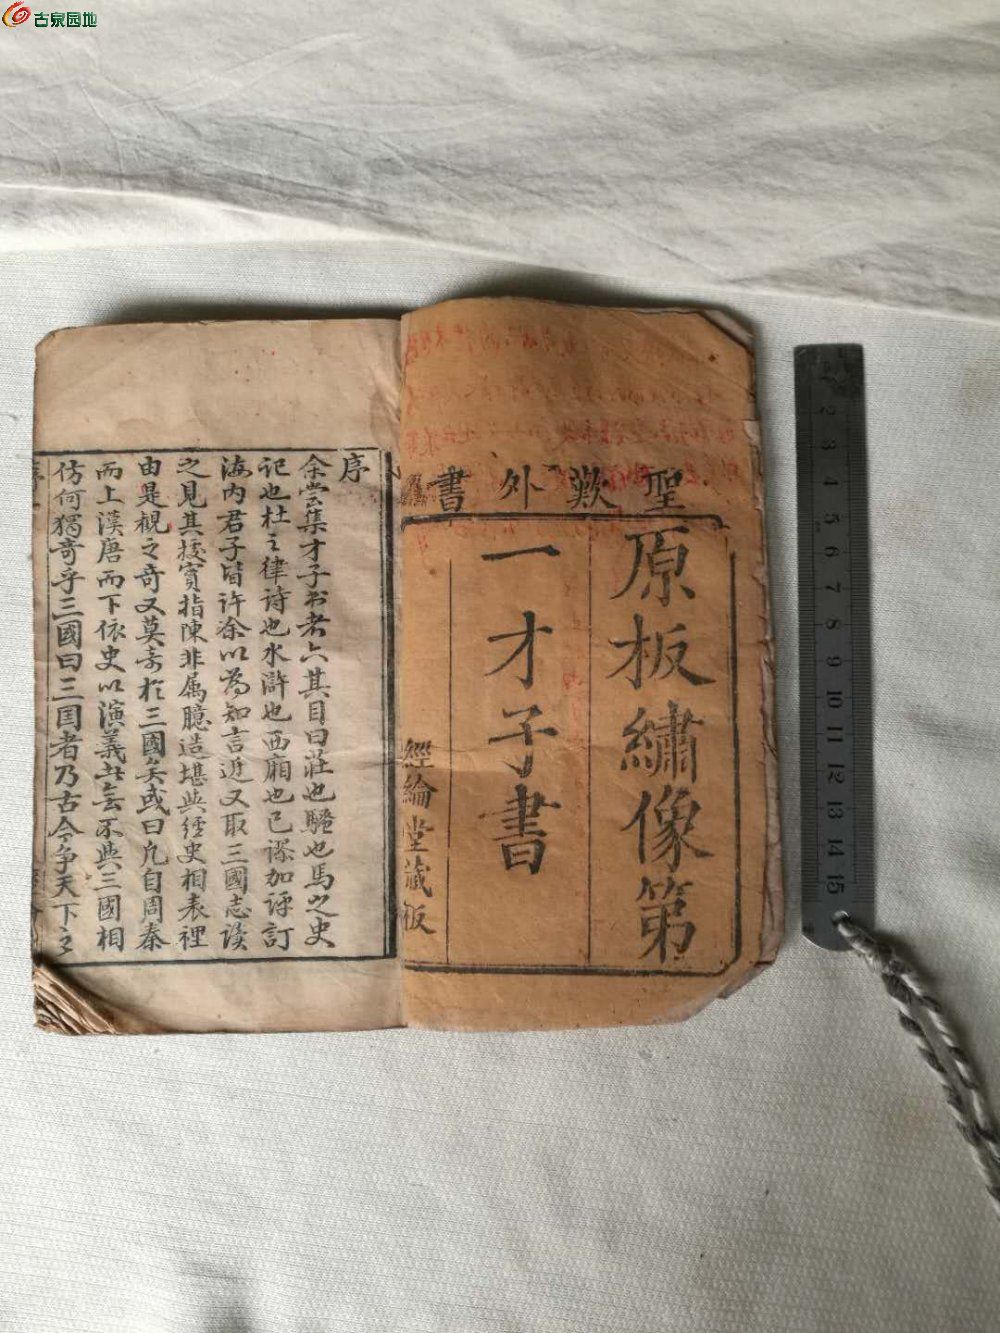 古泉园地
聖歎外書
原板繡像第
一才子書
經綸堂藏板
序
余嘗集才子书者六其目曰莊也騷也馬之史
记也杜之律诗也水滸也西廂也已謬加評訂
海内君子皆许余以為知言近又取三國志读
之見其據實指陳非属臆造堪與經史相表裡
由是觀之奇又莫奇於三國矣或曰凡自周秦
而上漢唐而下依史以演義者無不與三國相
仿何獨奇乎三國曰三国者乃古今争天下之
2
3
4
5
6
7
8
9
10
11
12
13
14
15